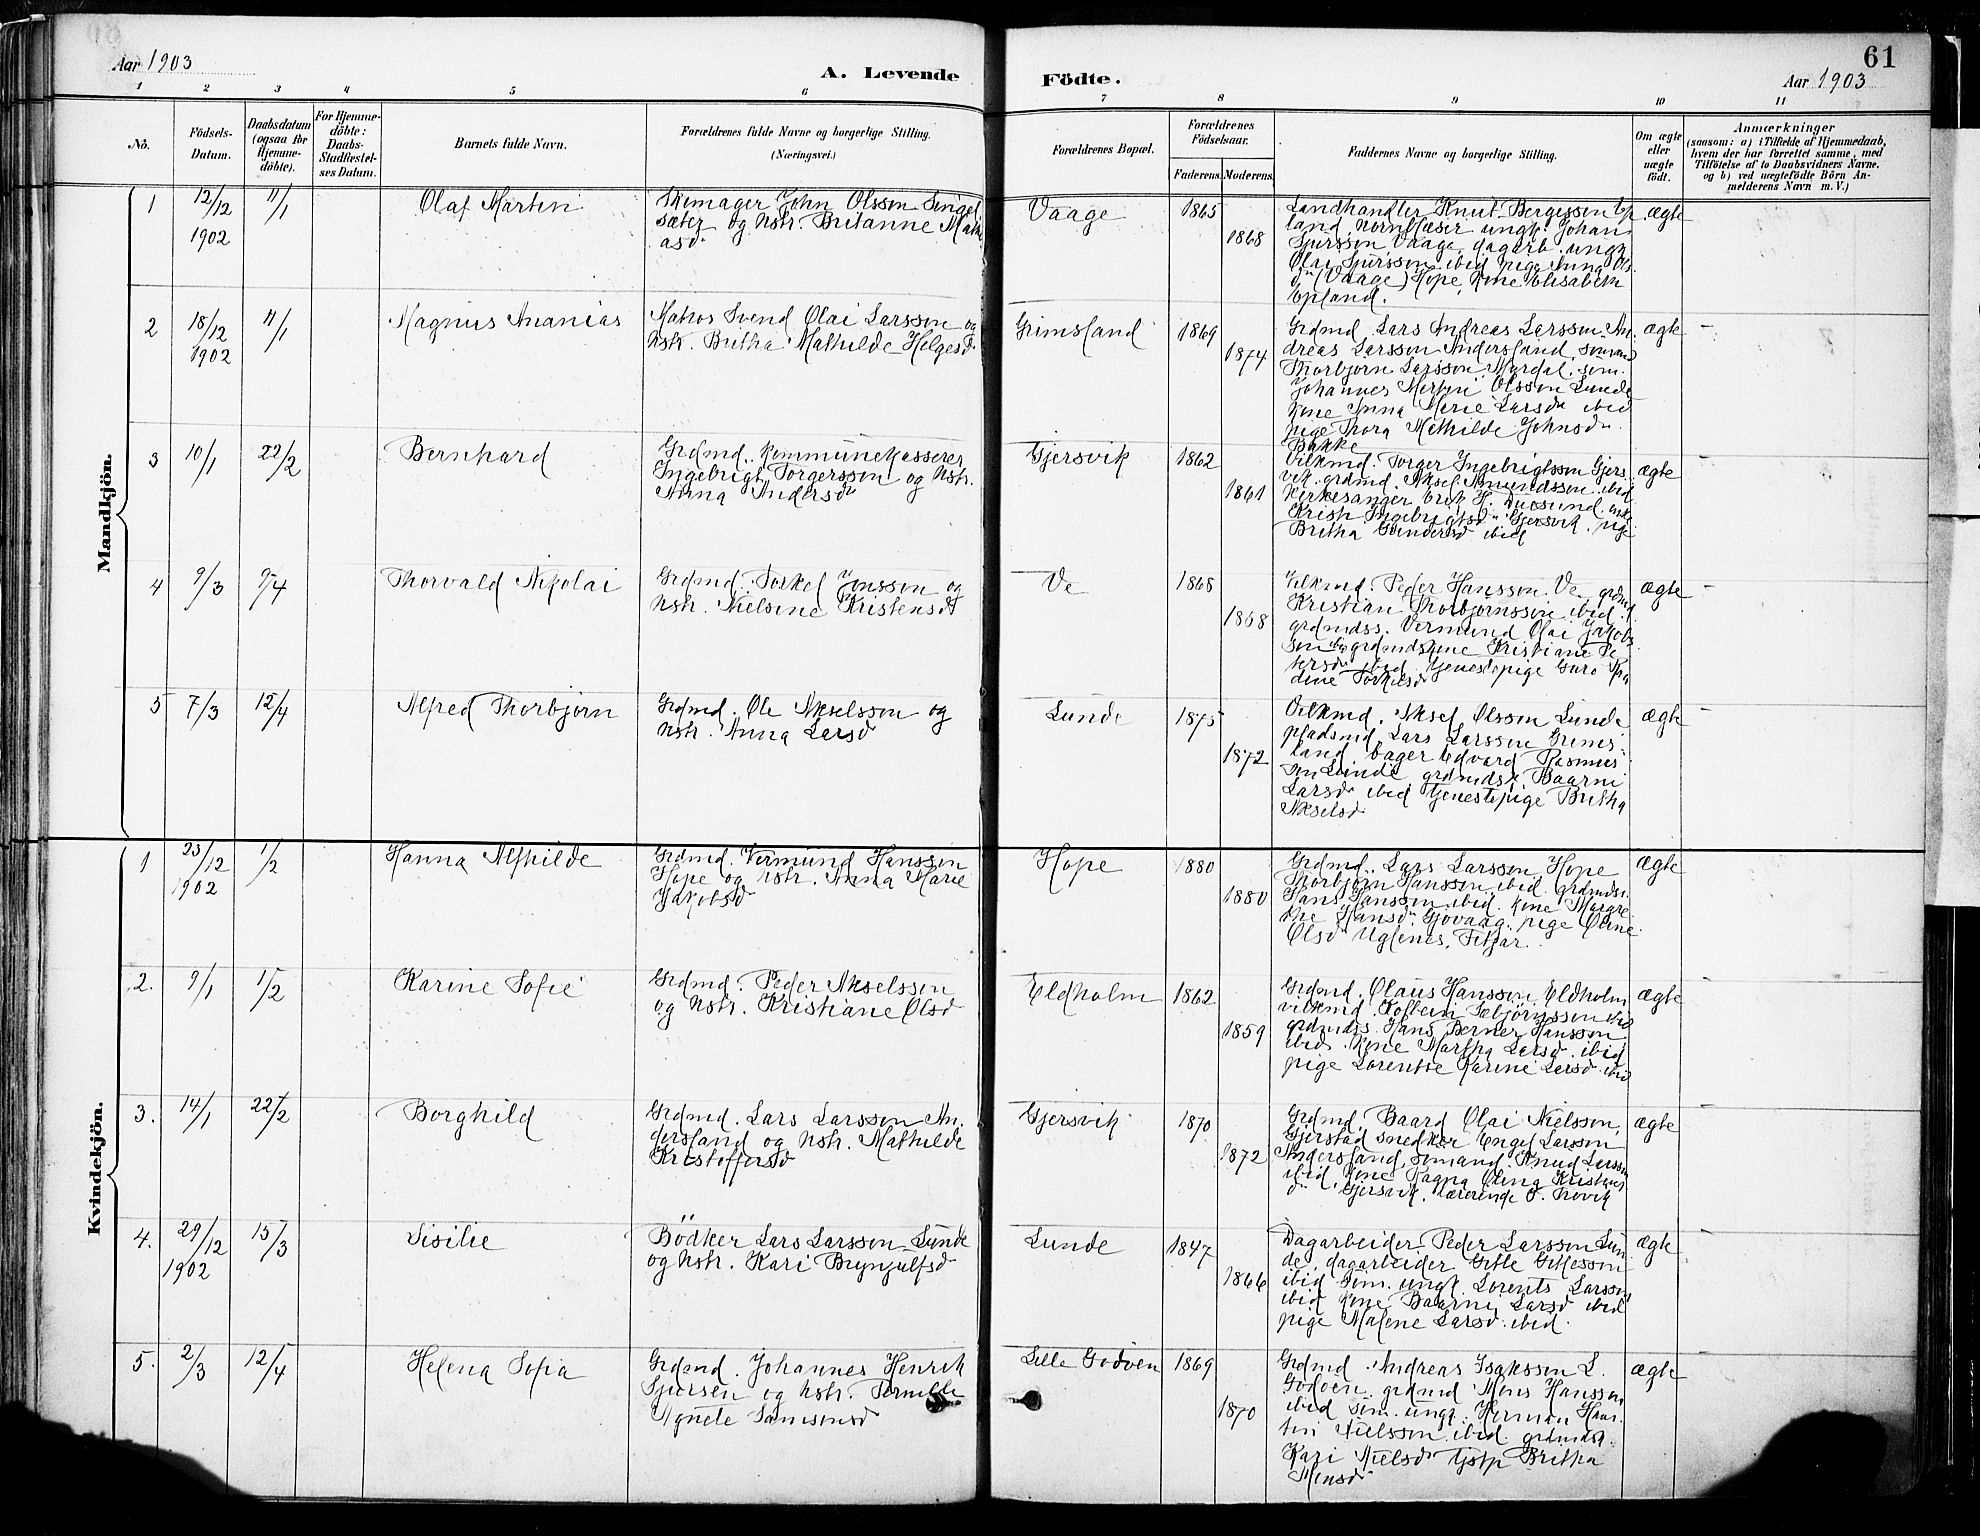 61
Aar 1903
A. Levende
Födte.
Aar 1903
1 2 3 4 5 6 7 8 9 10 11
No.
Födsels-
Datum.
Daabsdatum
(ogsaa for
Hjemme-
döbte).
For Hjemme-
döbte:
Daabs-
Stadfæstel-
ses Datum.
Barnets fulde Navn.
Forældrenes fulde Navne og borgerlige Stilling.
(Næringsvei.)
Forældrenes Bopæl.
Forældrenes
Födselsaar.
Faderens. Moderens.
Faddernes Navne og borgerlige Stilling.
Om ægte
eller
uægte
födt.
Anmærkninger
(saasom: a) i Tilfælde af Hjemmedaab,
hvem der har forrettet samme, med
Tilföielse af to Daabsvidners Navne.
og b) ved uægtefödte Börn An-
melderens Navn m. V.)
Mandkjön.
1
12/12
1902
11/1
Olaf Martin
Skomager John Olsson
og hstr. Britanne
Vaage
1865
1868
Landhandler Knut Bergesson
ungk. Johan
Sjursson Vaage, dagarb. ungk
Olai Sjursson ibid pige Anna Ols
d. (Vaage) Hope, kone Elisabeth
Opland.
ægte
2
18/12
1902
11/1
Magnus Ananias
Matros Svend Olai Larsson og
hstr. Britha Mathilde Helgesd
Grimsland
1869
1874
Grdmd. Lars Andreas Larsson An
dreas Larsson Andersland, sömand
Thorbjörn Larsson Myrdal, söm.
Johannes Martin Olsson Lunde
kone Anna Marie Larsd. ibid
pige Thora Mathilde Johnsd.
Bakke
ægte
3
10/1
22/2
Bernhard
Grdmd. kommunekasserer
Ingebrigt Torgersson og hstr.
Anna Andersd
Gjersvik
1862
1861
Vilkmd. Torger Ingebrigtsson Gjers
vik. grdmd. Aksel Amundsson ibid
kirkesanger Erik H. enke
Ingebrigtsd. Gjersvik, pige
Britha ibid
ægte
4
9/3
9/4
Thorvald Nikolai
Grdmd. Torkel Jonsson og
hstr. Nielsine Kristensd
Ve
1868
1868
Vilkmd. Peder Hansson Ve grdmd
Kristian Thorbjörnsson ibid.
grdmdss. Vermund Olai Jakobs
son ibid grdmdskone Kristiane Pe
dersd. ibid. tjenestepige Guro
dine Torkelsd
ægte
5
7/3
12/4
Alfred Thorbjörn
Grdmd. Ole Akselsson og
hstr. Anna Larsd
Lunde
1875
1872
Vilkmd. Aksel Olsson Lunde
pladsmd. Lars Larsson Grims
land, bager Edvard Rasmus
sen Lunde grdmdsk Baarni
Larsd. ibid tjenestepige Britha
Akselsd
ægte
Kvindekjön.
1
23/12
1902
1/2
Hanna Alfhilde
Grdmd. Vermund Hansson
Hope og hstr. Anna Marie
Jakobsd
Hope
1880
1880
Grdmd. Lars Larsson Hope
Thorbjörn Hansson ibid. grdmdss.
Hans Hansson ibid. kone Margre
the Hansd. Gjövaag, pige Oline
Olsd Uglenes, Fitjar.
ægte
2.
9/1
1/2
Karine Sofie
Grdmd. Peder Akselsson
og hstr. Kristiane Olsd
Eldholm
1862
1859
Grdmd. Olaus Hansson Eldholm
vilkmd. Kolbein Sebjörnsson ibid
grdmdss. Hans Berner Hansson
ibid. kone Martha Larsd. ibid
pige Lorentse Karine Larsd. ibid
ægte
3.
14/1
22/2
Borghild
Grdmd. Lars Larsson An
dersland og hstr. Mathilde
Kristoffersd
Gjersvik
1870
1872
Grdmd. Baard Olai Nielsson,
Gjerstad snedker Engel Larsson
Andersland, sömand Knud Larsson
ibid, kone Ragna Olina Kristens
d. Gjersvik, lærerinde O.
ægte
4.
29/12
1902
15/3
Sisilie
Bödker Lars Larsson Lunde
og hstr. Kari Brynjulfsd
Lunde
1847
1866
Dagarbeider Peder Larsson Lun
de, dagarbeider Gitle Gitlesson
ibid söm. ungk. Lorents Larsson
ibid kone Baarni Larsd ibid
pige Malene Larsd. ibid.
ægte
5.
2/3
12/4
Helena Sofia
Grdmd. Johannes Henrik
Sjursen og hstr. Pernille
Agnete Samsonsd
Lille Godöen
1869
1870
Grdmd. Andreas Isaksson L.
Godöen, grdmd Mons Hansson
ibid söm. ungk. Herman
Nielsson ibid. grdmdsk.
Kari Nielsd tjstp Britha
Monsd
ægte